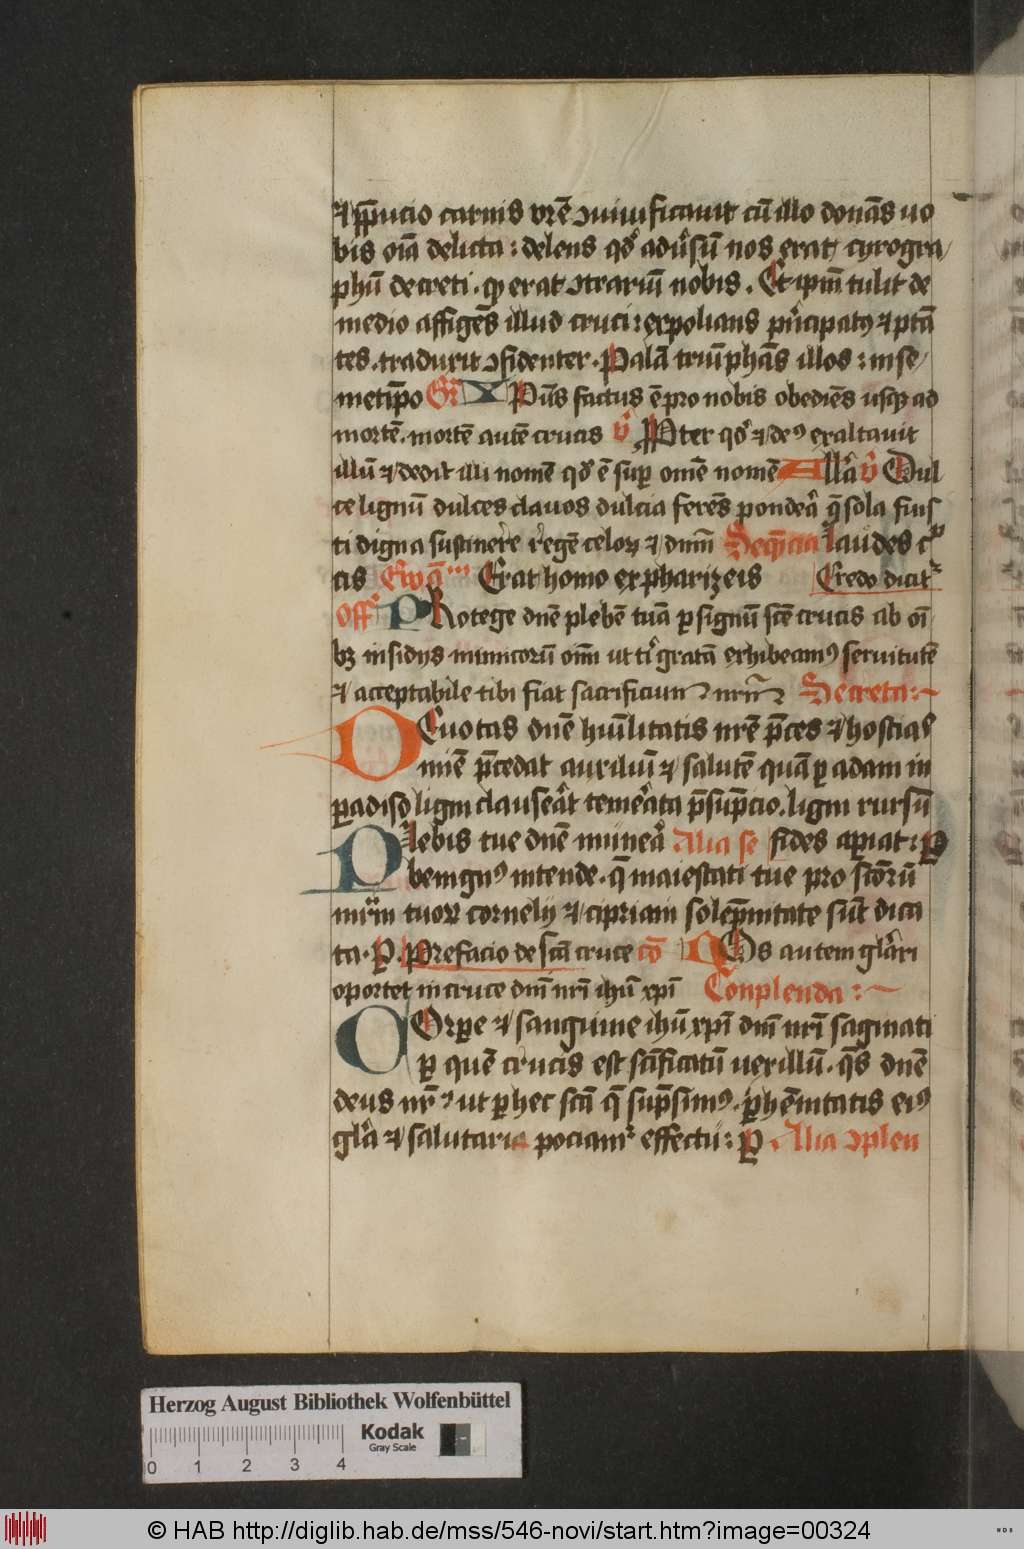 ⁊ p̄pucio carnis vr̄e ꝯuiuificauit cū illo donās uo
bis oīa delicta : delens qd̛ adūsū nos erat cyrogra
phū decreti . qͥ erat ꝯtrariū nobis . Et ipm̄ tulit de
medio affigēs illud cruci : expolians pͥncipatꝰ ⁊ ptā
tes . traduxit ꝯfidenter . Palā triūphās illos : in se
metip̄o Gr̄ XPūs factus ē pro nobis obediēs usqꝫ ad
mortē . mortē autē crucis v̛ PPter qd̛ ⁊ deꝰ exaltauit
illū ⁊ dedit illi nomē qd̛ ē suꝑ omē nomē Alla̛ v̛ Dul
ce lignū dulces clauos dulcia ferēs pondea̛ q̄ sola fuis
ti digna sustinere regē celoꝝ ⁊ dnm̄ Seq̄ncia laudes cͬ
cis Ewā Erat homo ex pharizeis Credo dicit᷑
Off̛ PRotege dnē plebē tuā ꝑ signū scē crucis ab oī
bꝫ insidijs inimicorū oīm ut tͥ gratā exhibeamꝰ seruitutē
⁊ acceptabile tibi fiat sacrificium nr̄m Secreta
DEuotas dnē hūilitatis nr̄e p̄ces ⁊ hostias
oīniē p̄cedat auxiliū ⁊ salutē quā ꝑ adam in
paradiso ligni clauseāt temeāta p̄sūpcio . ligni rursū
Plebis tue dnē munea̛ Alia se fides aꝑiat : P
benignꝰ intende . q̄ maiestati tue pro sc̄orū
mr̄m tuoꝝ cornelij ⁊ cipriani solēpnitate sūt dica
ta . P . Prefacio de scā cruce cō NOs autem gla̛ri
oportet in cruce dn̄i nr̄i ihū xp̄i Conplenda :
COrpe ⁊ sanguine ihū xp̄i dn̄i nr̄i saginati
ꝑ quē crucis est scīficatū uexillū . q̄s dnē
deus nr̄ ut ꝑ hec scā q̄ sūpsimꝰ . ꝑhēnitatis eiꝰ
gla̛ ⁊ salutaris pociam᷑ effectu : P . Alia ꝯplen
Herzog August Bibliothek Wolfenbüttel
Kodak
Gray Scale
0 1 2 3 4
© HAB http://diglib.hab.de/mss/546-novi/start.htm?image=00324